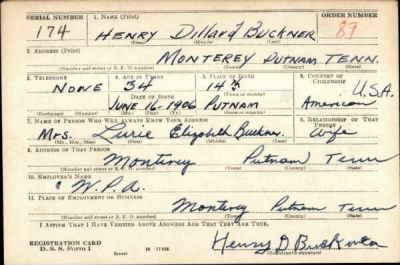 SERIAL NUMBER 1. NAME (Print) ORDER NUMBER
174 HENRY Dillard BUCKNER 89
(First) (Middle) (Last)
2. ADDRESS (Print)
MONTEREY PUTNAM TENN.
(Number and street or R. F. D. number) (Town) (County) (State)
3. TELEPHONE 4. AGE IN YEARS 5. PLACE OF BIRTH 6. COUNTRY OF CITIZENSHIP
NONE 34 14th U.S.A.
DATE OF BIRTH
JUNE 16-1906 PUTNAM American
7. NAME OF PERSON WHO WILL ALWAYS KNOW YOUR ADDRESS 8. RELATIONSHIP OF THAT PERSON
Mrs. Elizabeth Buckner. Wife
(Mr., Mrs., Miss) (First) (Middle) (Last)
9. ADDRESS OF THAT PERSON
Monterey Putnam Tenn
(Number and street or R. F. D. number) (Town) (County) (State)
10. EMPLOYER'S NAME
W.P.A.
11. PLACE OF EMPLOYMENT OR BUSINESS
Monterey Putnam Tenn
(Number and street or R. F. D. number) (Town) (County) (State)
I AFFIRM THAT I HAVE VERIFIED ABOVE ANSWERS AND THAT THEY ARE TRUE.
REGISTRATION CARD
D. S. S. FORM 1
Henry D Buckner
(Registrant's signature)